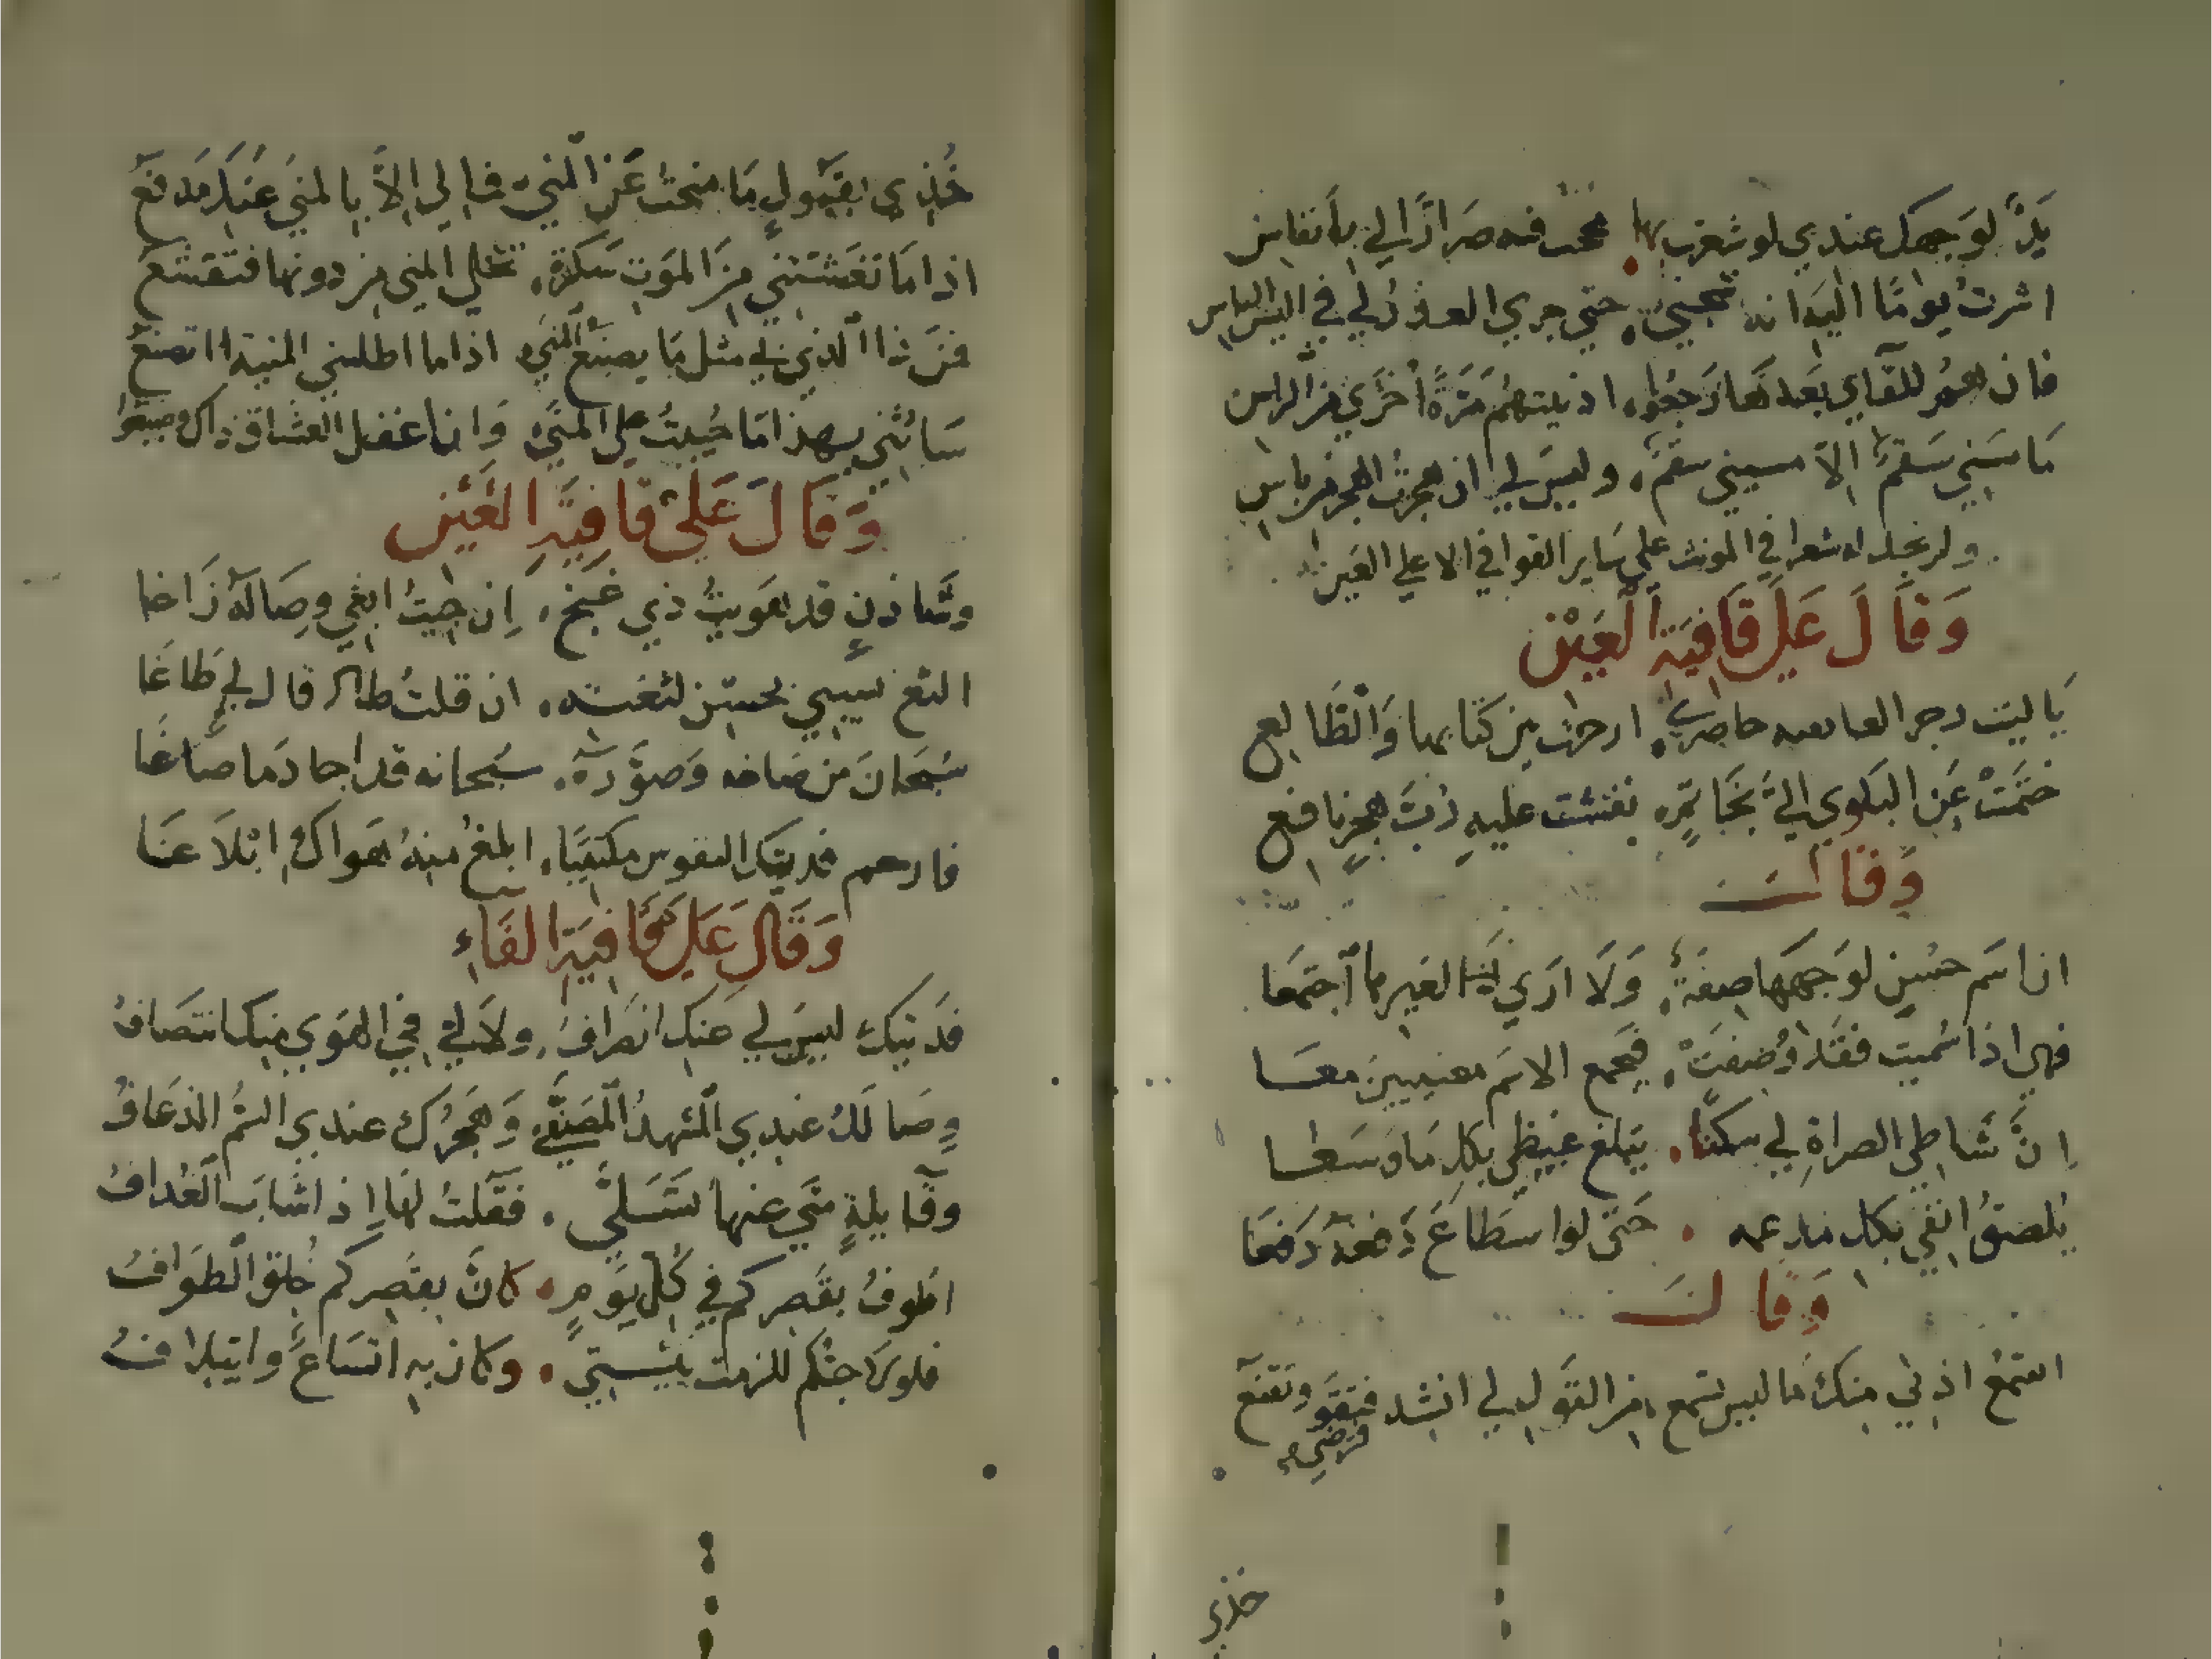 يَدٌ لوَجهكَ عندي لو شعرت بها
اثرتُ يوامًا اليه انه حتى جري العدو لي في الياس
فان همُ للقاي بعدها رَجعُوا اذيتهمُ مَرَّةً أخرَي من الراس
مَا مَسَّني سَقمٌ الاّ مسيني سقمٌ وليسَ لي ان هجرتُ الهجر من باس
ولم نجد له شعرا في المونث علي سَاير القوافي الا علي العين
وَقاَلَ عَلي قَافيَةِ الْعَيْن
يَا ليت من كتابها وَالْطَابع
ختَمَتْ عَن البلوي اليَّ بخَاتمٍ نفثت عليهِ
وَقَالَ
انا اسَم حسْنٍ لوَجهَها صفةٌ وَلَا ارَي ذا لغيرها اجتمَعَا
فهي اذا سُميت فقدْ وُصِفَتْ فيجمع الاسَم معنيين معَا
اِنَّ شَاطي الصراةِ لي سكنًا يبلغ غيظي بكل مَا وسَعَا
يُلصقُ انفي بكل حَتّى لوا سَطَاعَ دَفعَهُ دَفعَا
وَقَالَ
استمعُ اذني منكَ مَا ليسَ تسمع من القَولِ لي انشد وتقنعَ
فترضي
خذي
خُذِي بقبُولٍ مَا منحتُ عَن المنيَ فما لي الاَّ بالمنيَ عندَكَ مَدفعَ
اذا مَا تغَشتني مِنَ الموَتِ سَكرَةٌ تجلي المني من دونها فتقشعَ
فمَن ذا الذي لي مثل مَا يصنع المنيَ اذا ما اظلتني المنية اتصنعَ
سَاثني بهذا مَا حُييتُ علي المنيَ وَانا غفل العشاق ذاك وضيعوا
وَقَالَ عَلَي قَافِيَةِ الغَيْن
وشَادنٍ قد هَويتُ ذي غنج اِن جيتُ ابغي وِصَالهُ زَاغا
الثغ يسبي بحسن لثغته ان قلتُ طار قال لي طَاغَا
سُبحَانَ مَن صَاغه وَصَوَّرَهُ سُبحانه قد اجادَ ما صَاغَا
فارحم فديتك النفوس مكتئبًا ابلغ منهُ هَواك ابْلاَغَا
وَقَالَ عَلَي قَافيَةِ الفَاءِ
فدَيتكَ ليسَ لي عنك انصَرافُ ولا لي في الهَوي منك انتصَافُ
وِصَالكُ عندي الشهدُ المصَفّي وَهَجرُك عندي السُم الذعَافُ
وقَايلةٍ متَي عنها تَسَلّي فقَلتُ لها اِذا شابَ الغُدافُ
اطوفُ بقَصركم في كُل يَومٍ كانَّ بقَصركم خُلق الطَوافُ
فلولَا حبّكم للزمت بَيتي وكان به اتسَاعٌ وايتلافُ